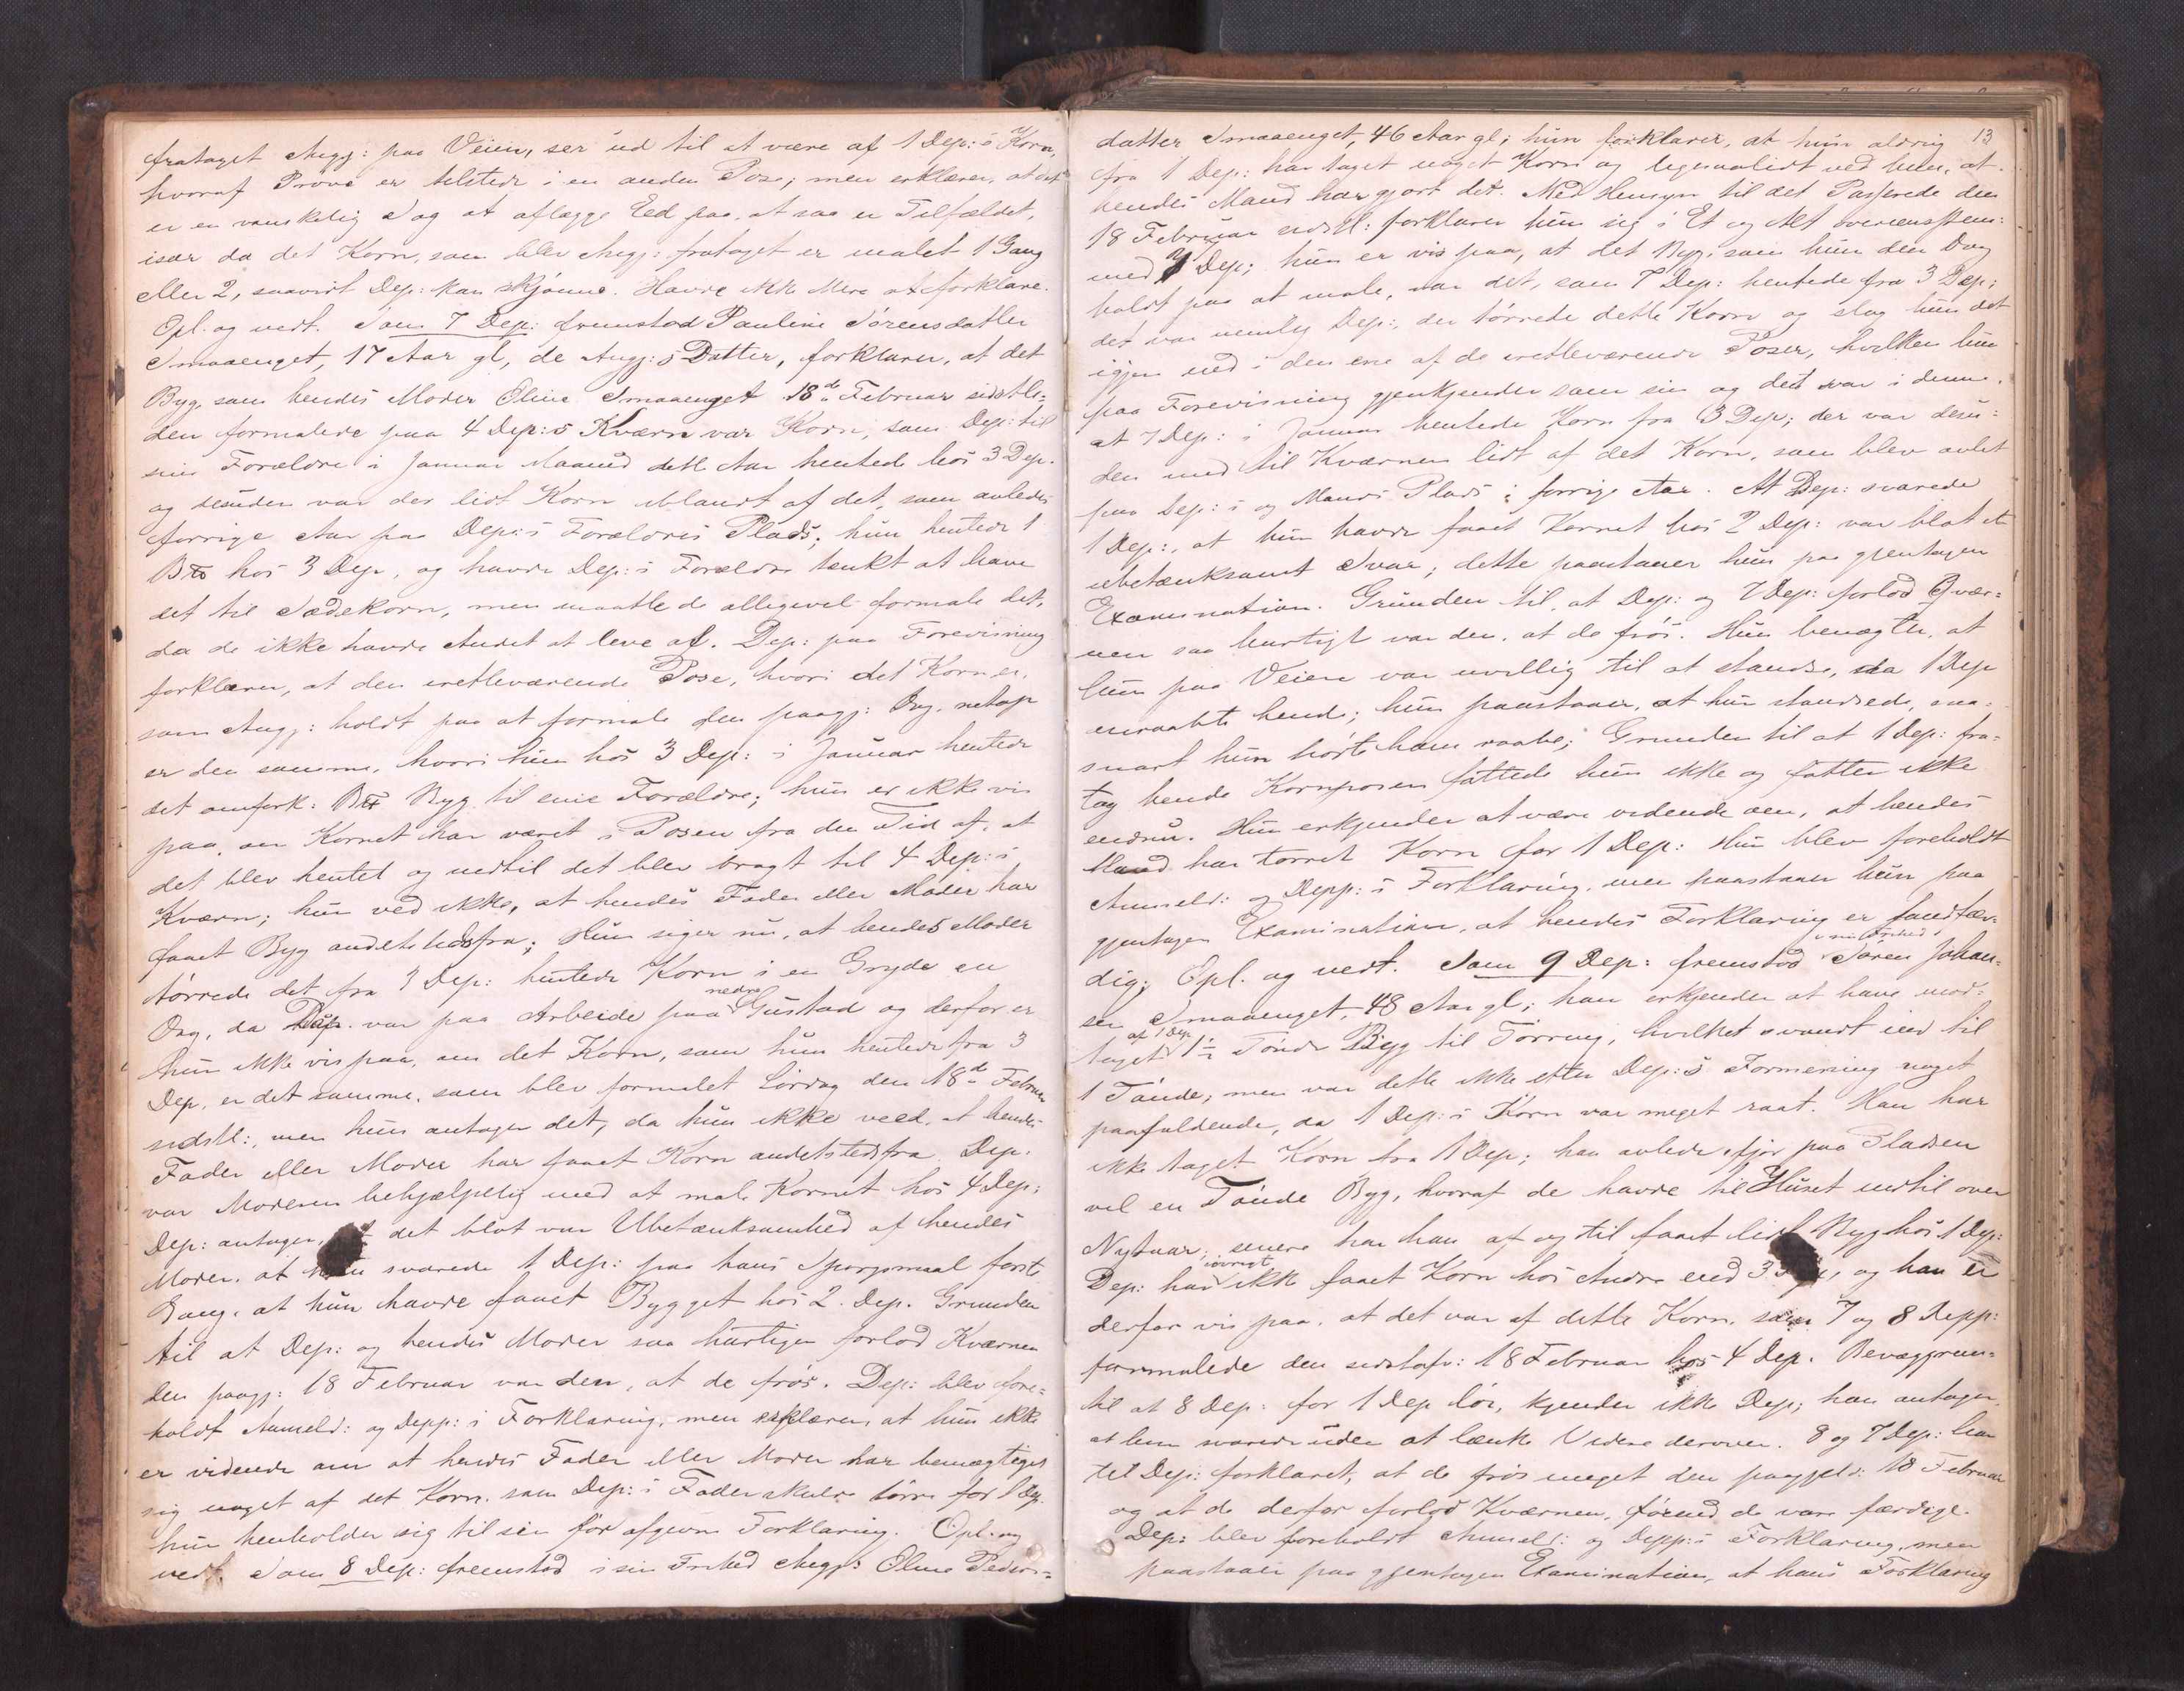 frataget Angj: paa Veien, ser ud til at være af 1 Dep:s Korn,
hvoraf Prøve er tilstede i en anden Pose; men erklærer, at det
er en vanskelig Sag at aflægge Eed paa, at saa er Tilfældet,
især da det Korn, som blev Angj: frataget er malet 1 Gang
eller 2, saavidt Dep: kan skjønne. Havde ikke Mere at forklare.
Opl. og vedt. Som 7 Dep: fremstod Pauline Sørensdatter
Smaaenget, 17 Aar gl, de Angj:s Datter, forklarer, at det
Byg, som hendes Moder Oline Smaaenget 18de Februar sidstle-
den formalede paa 4 Dep:s Kværn var Korn, som Dep: til
sine Forældre i Januar Maaned dette Aar hentede hos 3 Dep.
og desuden var der lidt Korn iblandt af det, som avledes
forrige Aar paa Dep:s Forældres Plads; hun hentede 1
hos 3 Dep, og havde Dep:s Forældre tænkt at have
det til Sædekorn, men maatte de alligevel formale det,
da de ikke havde Andet at leve af. Dep: paa Forevisning
forklarer, at den iretteværende Pose, hvori det Korn er,
som Angj: holdt paa at formale den paagj: Dag, netop
er den samme, hvori hun hos 3 Dep: i Januar hentede
det omfork: Byg til sine Forældre; hun er ikke vis
paa, om Kornet har været i Posen fra den Tid af, at
det blev hentet og indtil det blev bragt til 4 Dep:s
Kværn; hun ved ikke, at hendes Fader eller Moder har
faaet Byg andetstedsfra; Hun siger nu, at hendes Moder
tørrede det fra 3 Dep: hentede Korn i en Gryde en
Dag, da Dep. var paa Arbeide paa nedre Gustad og derfor er
hun ikke vis paa, om det Korn, som hun hentede fra 3
Dep. er det samme, som blev formalet Lørdag den 18de Februar
sidstl:, men hun antager det, da hun ikke veed, at hendes
Fader eller Moder har faaet Korn andetstedsfra. Dep.
var Moderen behjælpelig med at male Kornet hos 4 Dep:
Dep: antager, at det blot var Ubetænksomhed af hendes
Moder, at hun svarede 1 Dep: paa hans Spørgsmaal første
Gang, at hun havde faaet Bygget hos 2. Dep. Grunden
til at Dep: og hendes Moder saa hurtigen forlod Kværnen
den paagj: 18 Februar var den, at de frøs. Dep: blev fore-
holdt Anmeld: og Depp:s Forklaring, men erklærer, at hun ikke
er vidende om at hendes Fader eller Moder har bemægtiget
sig noget af det Korn, som Dep:s Fader skulde tørre for 1 Dep.
hun henholder sig til sin før afgivne Forklaring. Opl. og
vedt. Som 8 Dep: fremstod i sin Frihed Angj: Oline Peders-
13
datter Smaaenget, 46 Aar gl; hun forklarer, at hun aldrig
fra 1 Dep: har taget noget Korn og ligesaalidt ved hun, at
hendes Mand har gjort det. Med Hensyn til det Passerede den
18 Februar sidstl: forklarer hun sig i Et og Alt overensstem-
med 7 Dep; hun er vis paa, at det Byg, som hun den Dag
holdt paa at male, var det, som 7 Dep: hentede fra 3 Dep;
det var nemlig Dep:, der tørrede dette Korn og slog hun det
igjen ned i den ene af de iretteværende Poser, hvilken hun
paa Forevisning gjenkjender som sin og det var i denne,
at 7 Dep: i Januar hentede Korn fra 3 Dep; der var desu-
den med til Kværnen lidt af det Korn, som blev avlet
paa Dep:s og Mands Plads i forrige Aar. At Dep: svarede
1 Dep:, at hun havde faaet Kornet hos 2 Dep: var blot et
ubetænksomt Svar; dette paastaaer hun paa gjentagen
Examination. Grunden til, at Dep: og 7 Dep: forlod Qvær-
nen saa hurtigt var den, at de frøs. Hun benægter, at
hun paa Veien var uvillig til at standse, da 1 Dep
anraabte hende; hun paastaaer, at hun standsede, saa-
snart hun hørte ham raabe; Grunden til at 1 Dep: fra-
tog hende Kornposen fattede hun ikke og fatter ikke
endnu. Hun erkjender at være vidende om, at hendes
Mand har tørret Korn for 1 Dep: Hun blev foreholdt
Anmeld: og Depp:s Forklaring, men paastaaer hun paa
gjentagen Examination, at hendes Forklaring er sandfær-
dig; Opl. og vedt. Som 9 Dep: fremstod i sin Frihed Søren Johan-
sen Smaaenget, 48 Aar gl; han erkjender at have mod-
taget af 1 Dep 1½ Tønde Byg til Tørring, hvilket svandt ind til
1 Tønde; men var dette ikke efter Dep:s Formening noget
paafaldende, da 1 Dep:s Korn var meget raat. Han har
ikke taget Korn fra 1 Dep; han avlede ifjor paa Pladsen
vel en Tønde Byg, hvoraf de havde til Huset indtil over
Nytaar; senere har han af og til faaet lidt Byg hos 1 Dep:
Dep: har iøvrigt ikke faaet Korn hos Andre end 3 Dep, og han er
derfor vis paa, at det var af dette Korn, som 7 og 8 Depp:
formalede den sidstafv: 18 Februar hos 4 Dep. Bevæggrun-
til at 8 Dep: for 1 Dep løi, kjender ikke Dep; han antager
at hun svarede uden at tænke Videre derover. 8 og 7 Dep: har
til Dep: forklaret, at de frøs meget den paagjeld: 18 Februar
og at de derfor forlod Kværnen, førend de vare færdige.
Dep: blev foreholdt Anmeld: og Depp:s Forklaring, men
paastaaer paa gjentagen Examination, at hans Forklaring